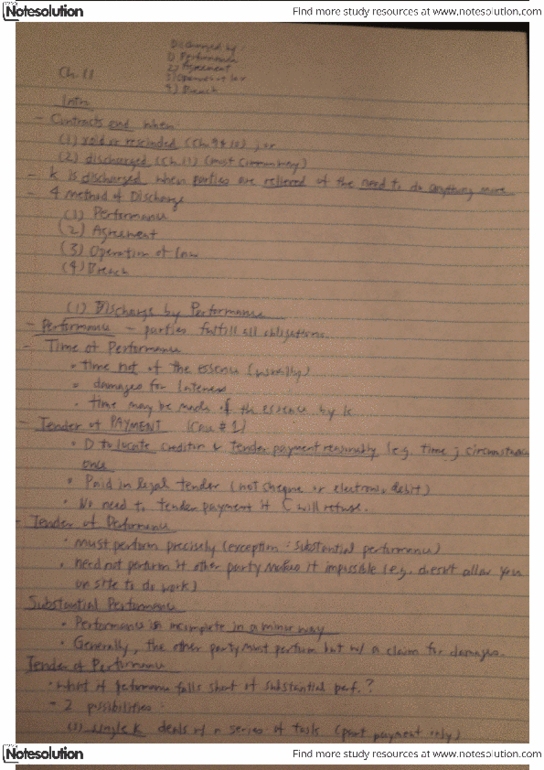 Notesolution
Find more study resources at www.notesolution.com
Discharged by:
1) Performance
2) Agreement
3) Operation of law
4) Breach
Ch. 11
Intro
- Contracts end when:
(1) void or rescinded (Ch. 9 & 10), or
(2) discharged (Ch. 11) (most
- K is discharged when parties are relieved of the need to do anything more
- 4 method of Discharge
(1) Performance
(2) Agreement
(3) Operation of law
(4) Breach
(1) Discharge by Performance
- Performance - parties fulfill all obligations.
- Time of Performance
• time not of the essence (usually)
• damages for lateness
• time may be made of the essence by K
- Tender of PAYMENT (Case # 1)
• D to locate creditor & tender payment reasonably (e.g. time,
once
• Paid in legal tender (not cheque or electronic debit)
• No need to tender payment if C will refuse.
- Tender of Performance
• must perform precisely (exception: substantial performance)
• need not perform if other party makes it impossible (e.g. doesn't allow you
on site to do work)
Substantial Performance
• Performance is incomplete in a minor way
• Generally, the other party must perform but w/ a claim for damages.
Tender of Performance
• what if performance falls short of substantial perf.?
- 2 possibilities:
(1) single K deals w/ a series of tasks (part payment only)
Notesolution
Find more study resources at www.notesolution.com